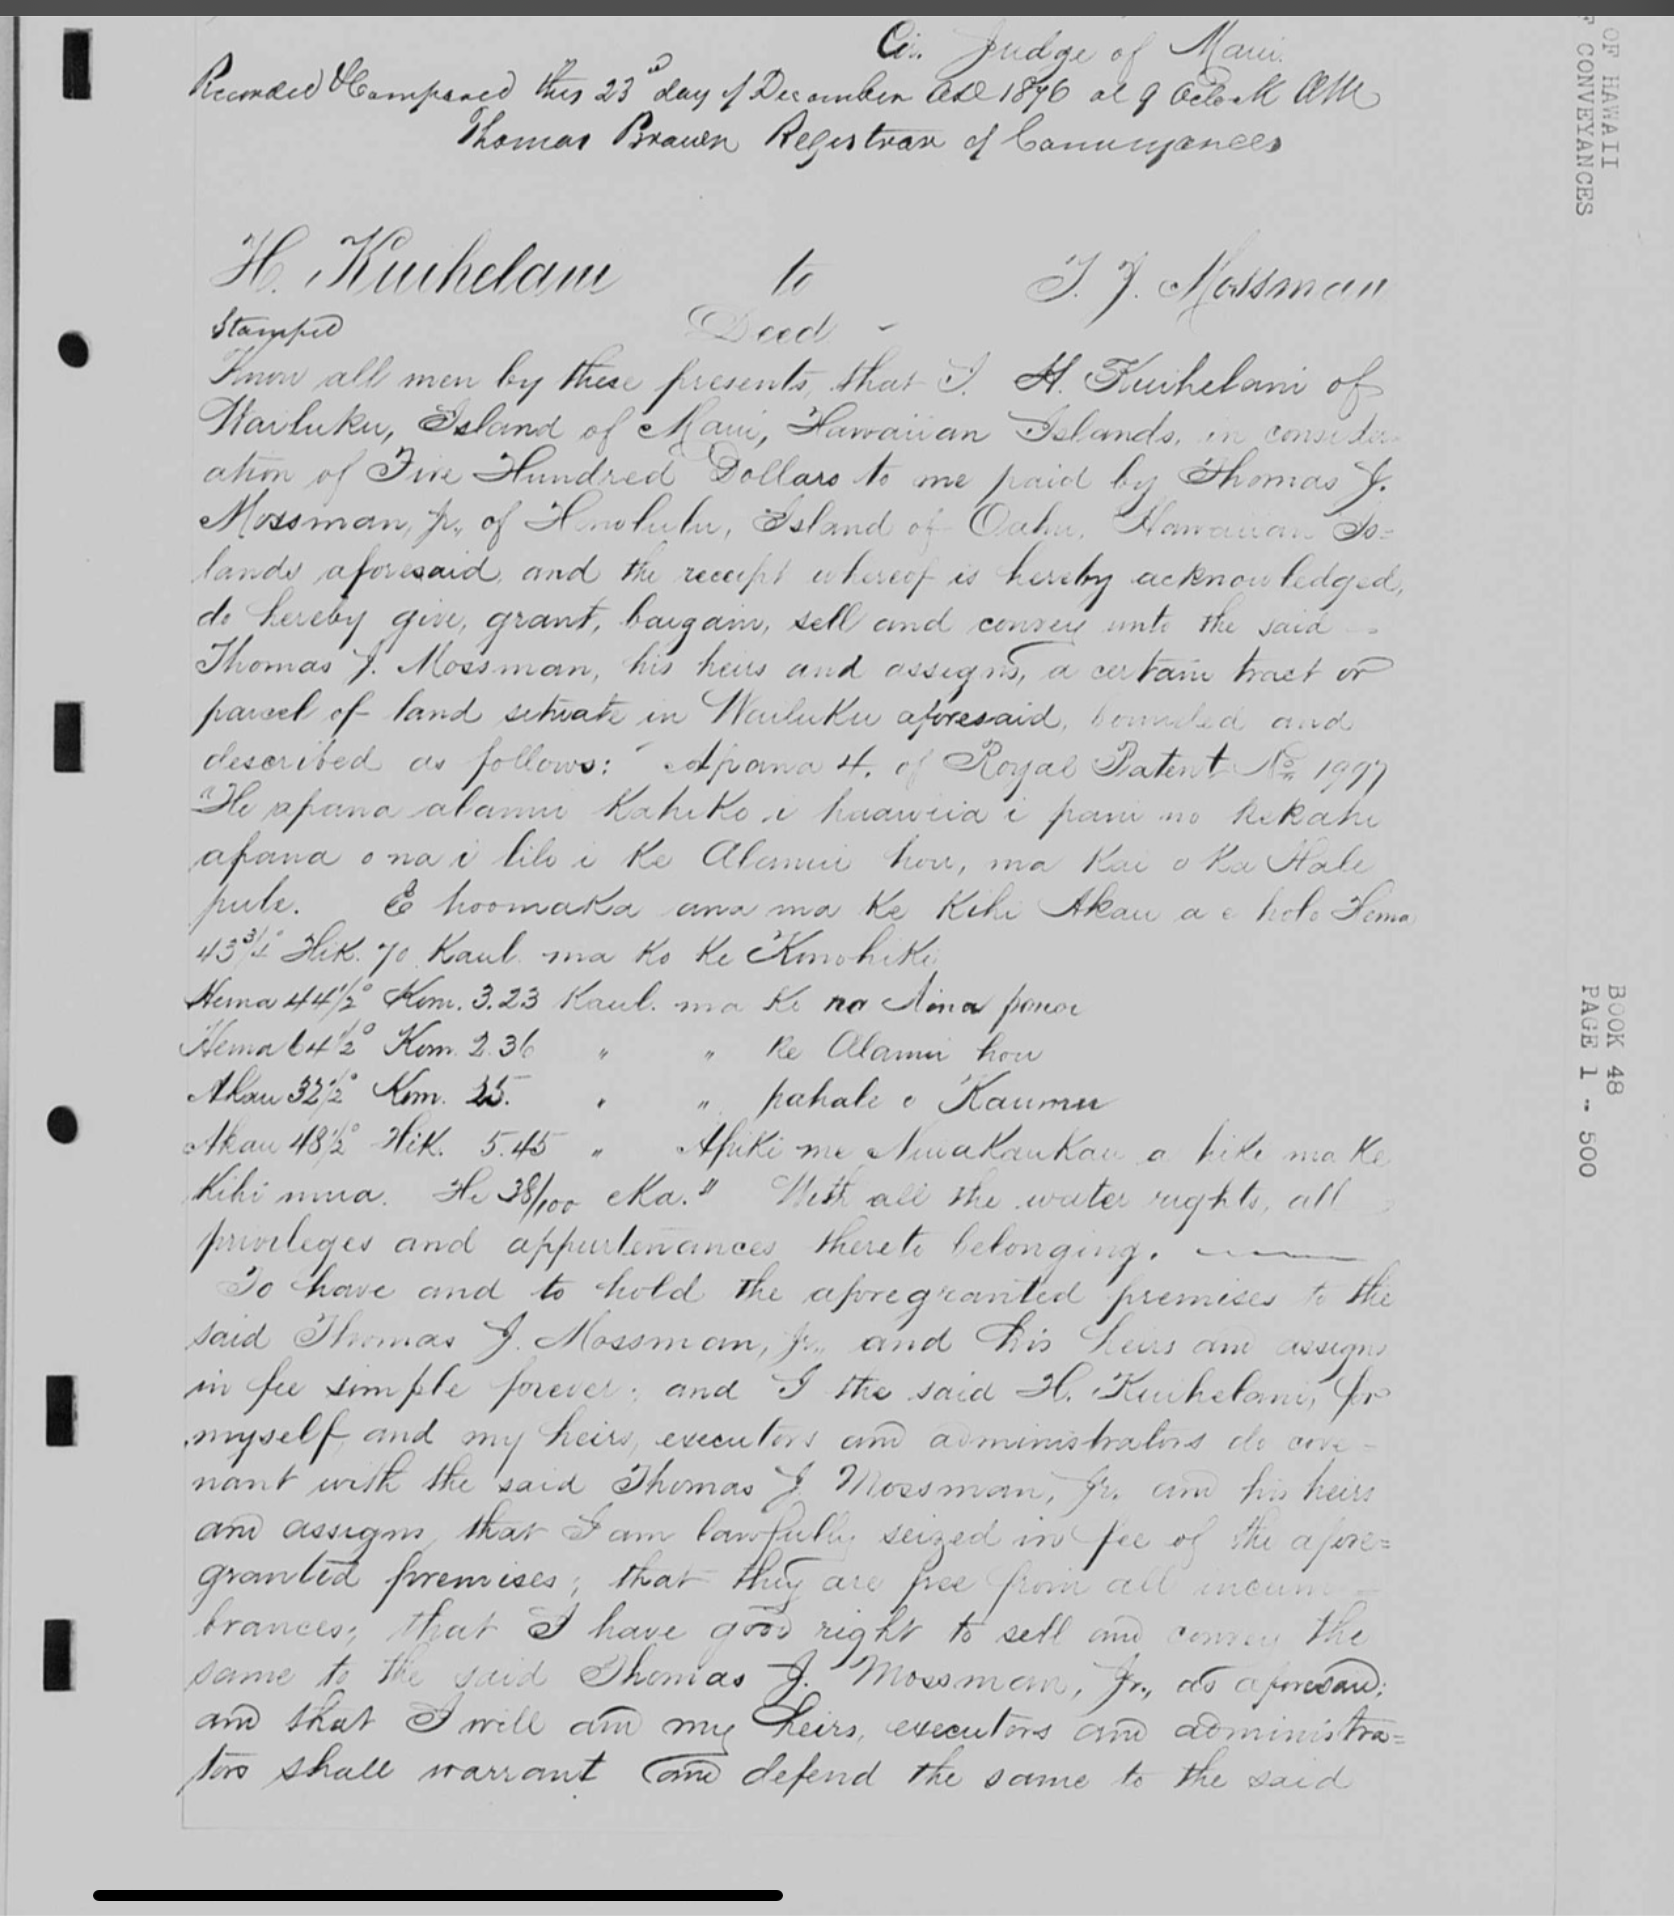 Cir. Judge of Maui.
Recorded & Compared this 23rd day of December AD 1876 at 9 Oclock AM
Thomas Brown Registrar of Conveyances
H. Kuihelani to T. J. Mossman
Stamped Deed -
Know all men by these presents, that I. H. Kuihelani of
Wailuku, Island of Maui, Hawaiian Islands, in consider-
ation of Five Hundred Dollars to me paid by Thomas J.
Mossman, jr., of Honolulu, Island of Oahu, Hawaiian Is=
lands aforesaid, and the receipt whereof is hereby acknowledged,
do hereby give, grant, bargain, sell and convey unto the said -
Thomas J. Mossman, his heirs and assigns, a certain tract or
parcel of land situate in Wailuku aforesaid, bounded and
described as follows: Apana 4. of Royal Patent No. 1997
"He apana alanui Kahiko i haawiia i pani no kekahi
apana o na i lilo i ke Alanui hou, ma Kai o Ka Hale
pule. E hoomaka ana ma Ke Kihi Akau a e holo Hema
43 3/4° Hik. 70 Kaul. ma Ko Ke Konohiki
Hema 44 1/2° Kom. 3.23 Kaul. ma Ke no Aina ponoi
Hema 64 1/2° Kom. 2.36 " " Ke Alanui hou
Akau 32 1/2° Kom. 25. " " pahale o Kaumu
Akau 48 1/2° Hik. 5.45 " Apiki me Nuwakaukau a hiki ma Ke
Kihi mua. He 38/100 eKa." With all the water rights, all
privileges and appurtenances thereto belonging.
To have and to hold the aforegranted premises to the
said Thomas J. Mossman, jr., and his heirs and assigns
in fee simple forever; and I the said H. Kuihelani, for
myself, and my heirs, executors and administrators do cove-
nant with the said Thomas J. Mossman, Jr. and his heirs
and assigns, that I am lawfully seized in fee of the afore=
granted premises; that they are free from all incum-
brances; that I have good right to sell and convey the
same to the said Thomas J. Mossman, Jr., as aforesaid;
and that I will and my heirs, executors and administra=
tors shall warrant and defend the same to the said
OF HAWAII
F CONVEYANCES
BOOK 48
PAGE 1 - 500